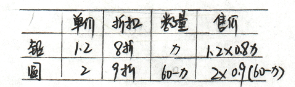 单价 折扣 数量 售价
铅 1.2 8折 x 1.2×0.8x
圆 2 9折 60-x 2×0.9(60-x)